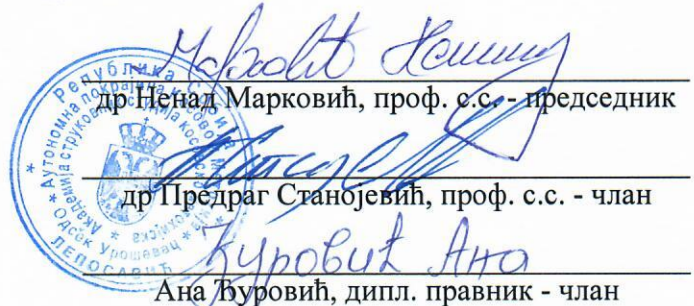 Марковић Ненад
др Ненад Марковић, проф. с.с. - председник
др Предраг Станојевић, проф. с.с. - члан
Ђуровић Ана
Ана Ђуровић, дипл. правник - члан
Република Србија
Аутономна покрајина Косово и
Академија струковних студија косовско
Одсек Урошевац
ЛЕПОСАВИЋ